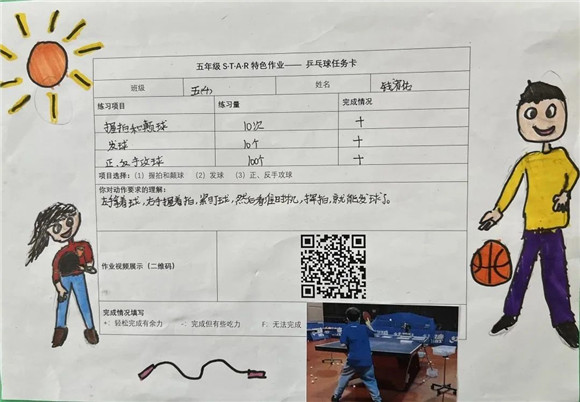 五年级 S·T·A·R 特色作业—— 乒乓球任务卡
班级 五(1) 姓名
练习项目 练习量 完成情况
握拍和颠球 10次 +
发球 10个 +
正、反手攻球 100个 +
项目选择：(1) 握拍和颠球 (2) 发球 (3) 正、反手攻球
你对动作要求的理解：
左手拿着球，右手握着拍，抛球，然后看准时机，挥拍，就能发球了。
作业视频展示（二维码）
完成情况填写
+：轻松完成有余力 -：完成但有些吃力 F：无法完成